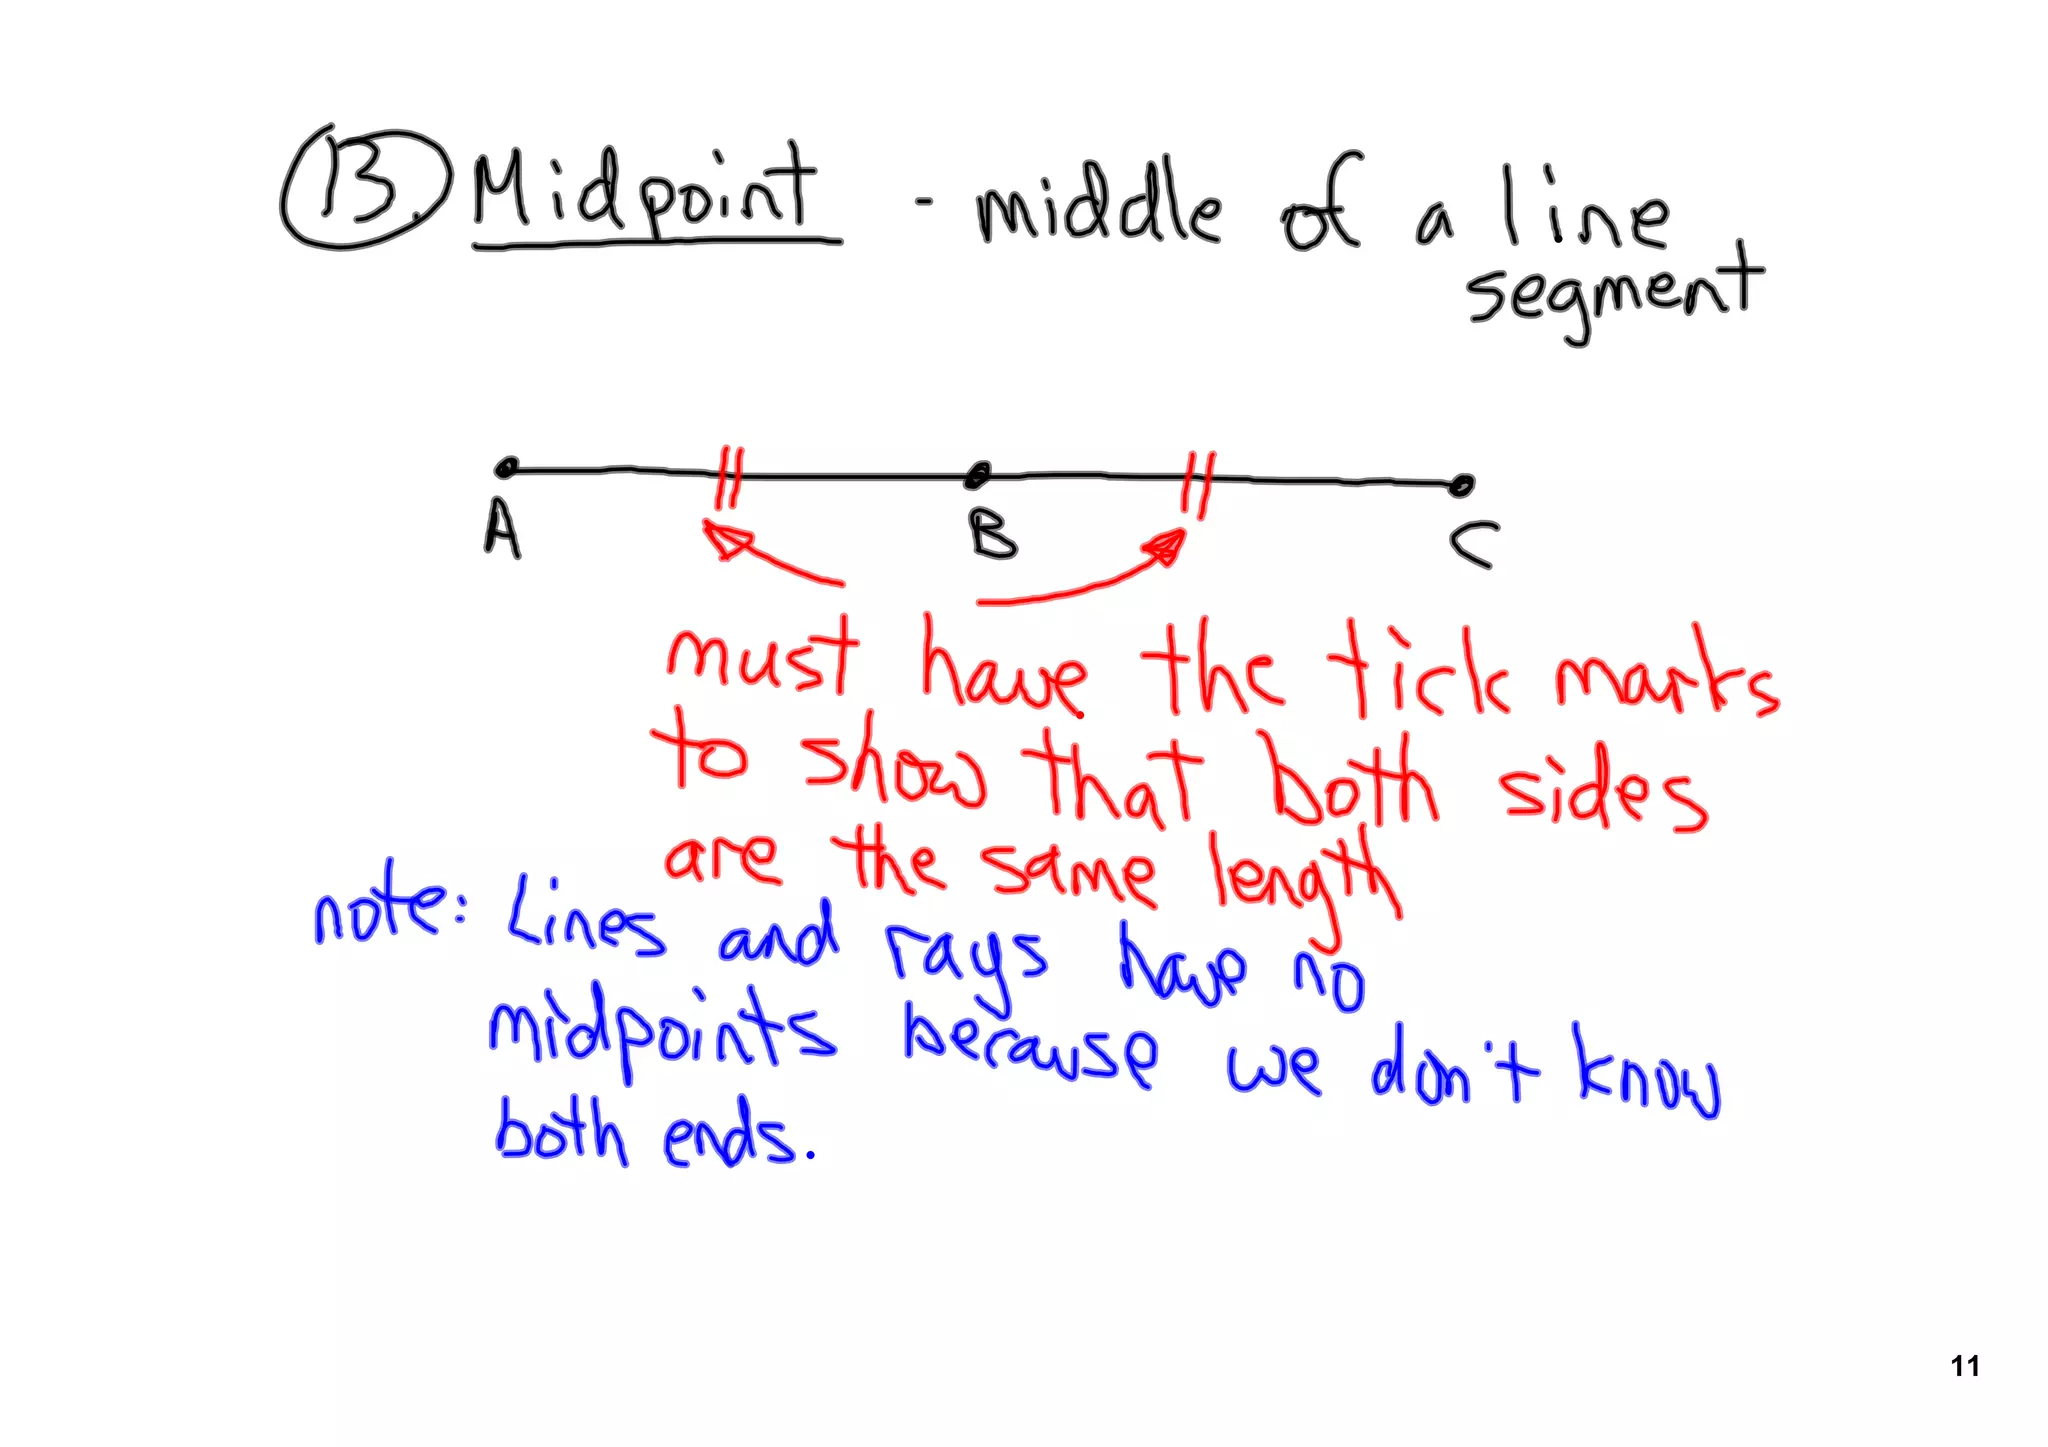 13. Midpoint - middle of a line
segment
A B C
must have the tick marks
to show that both sides
are the same length
note: Lines and rays have no
midpoints because we don't know
both ends.
11